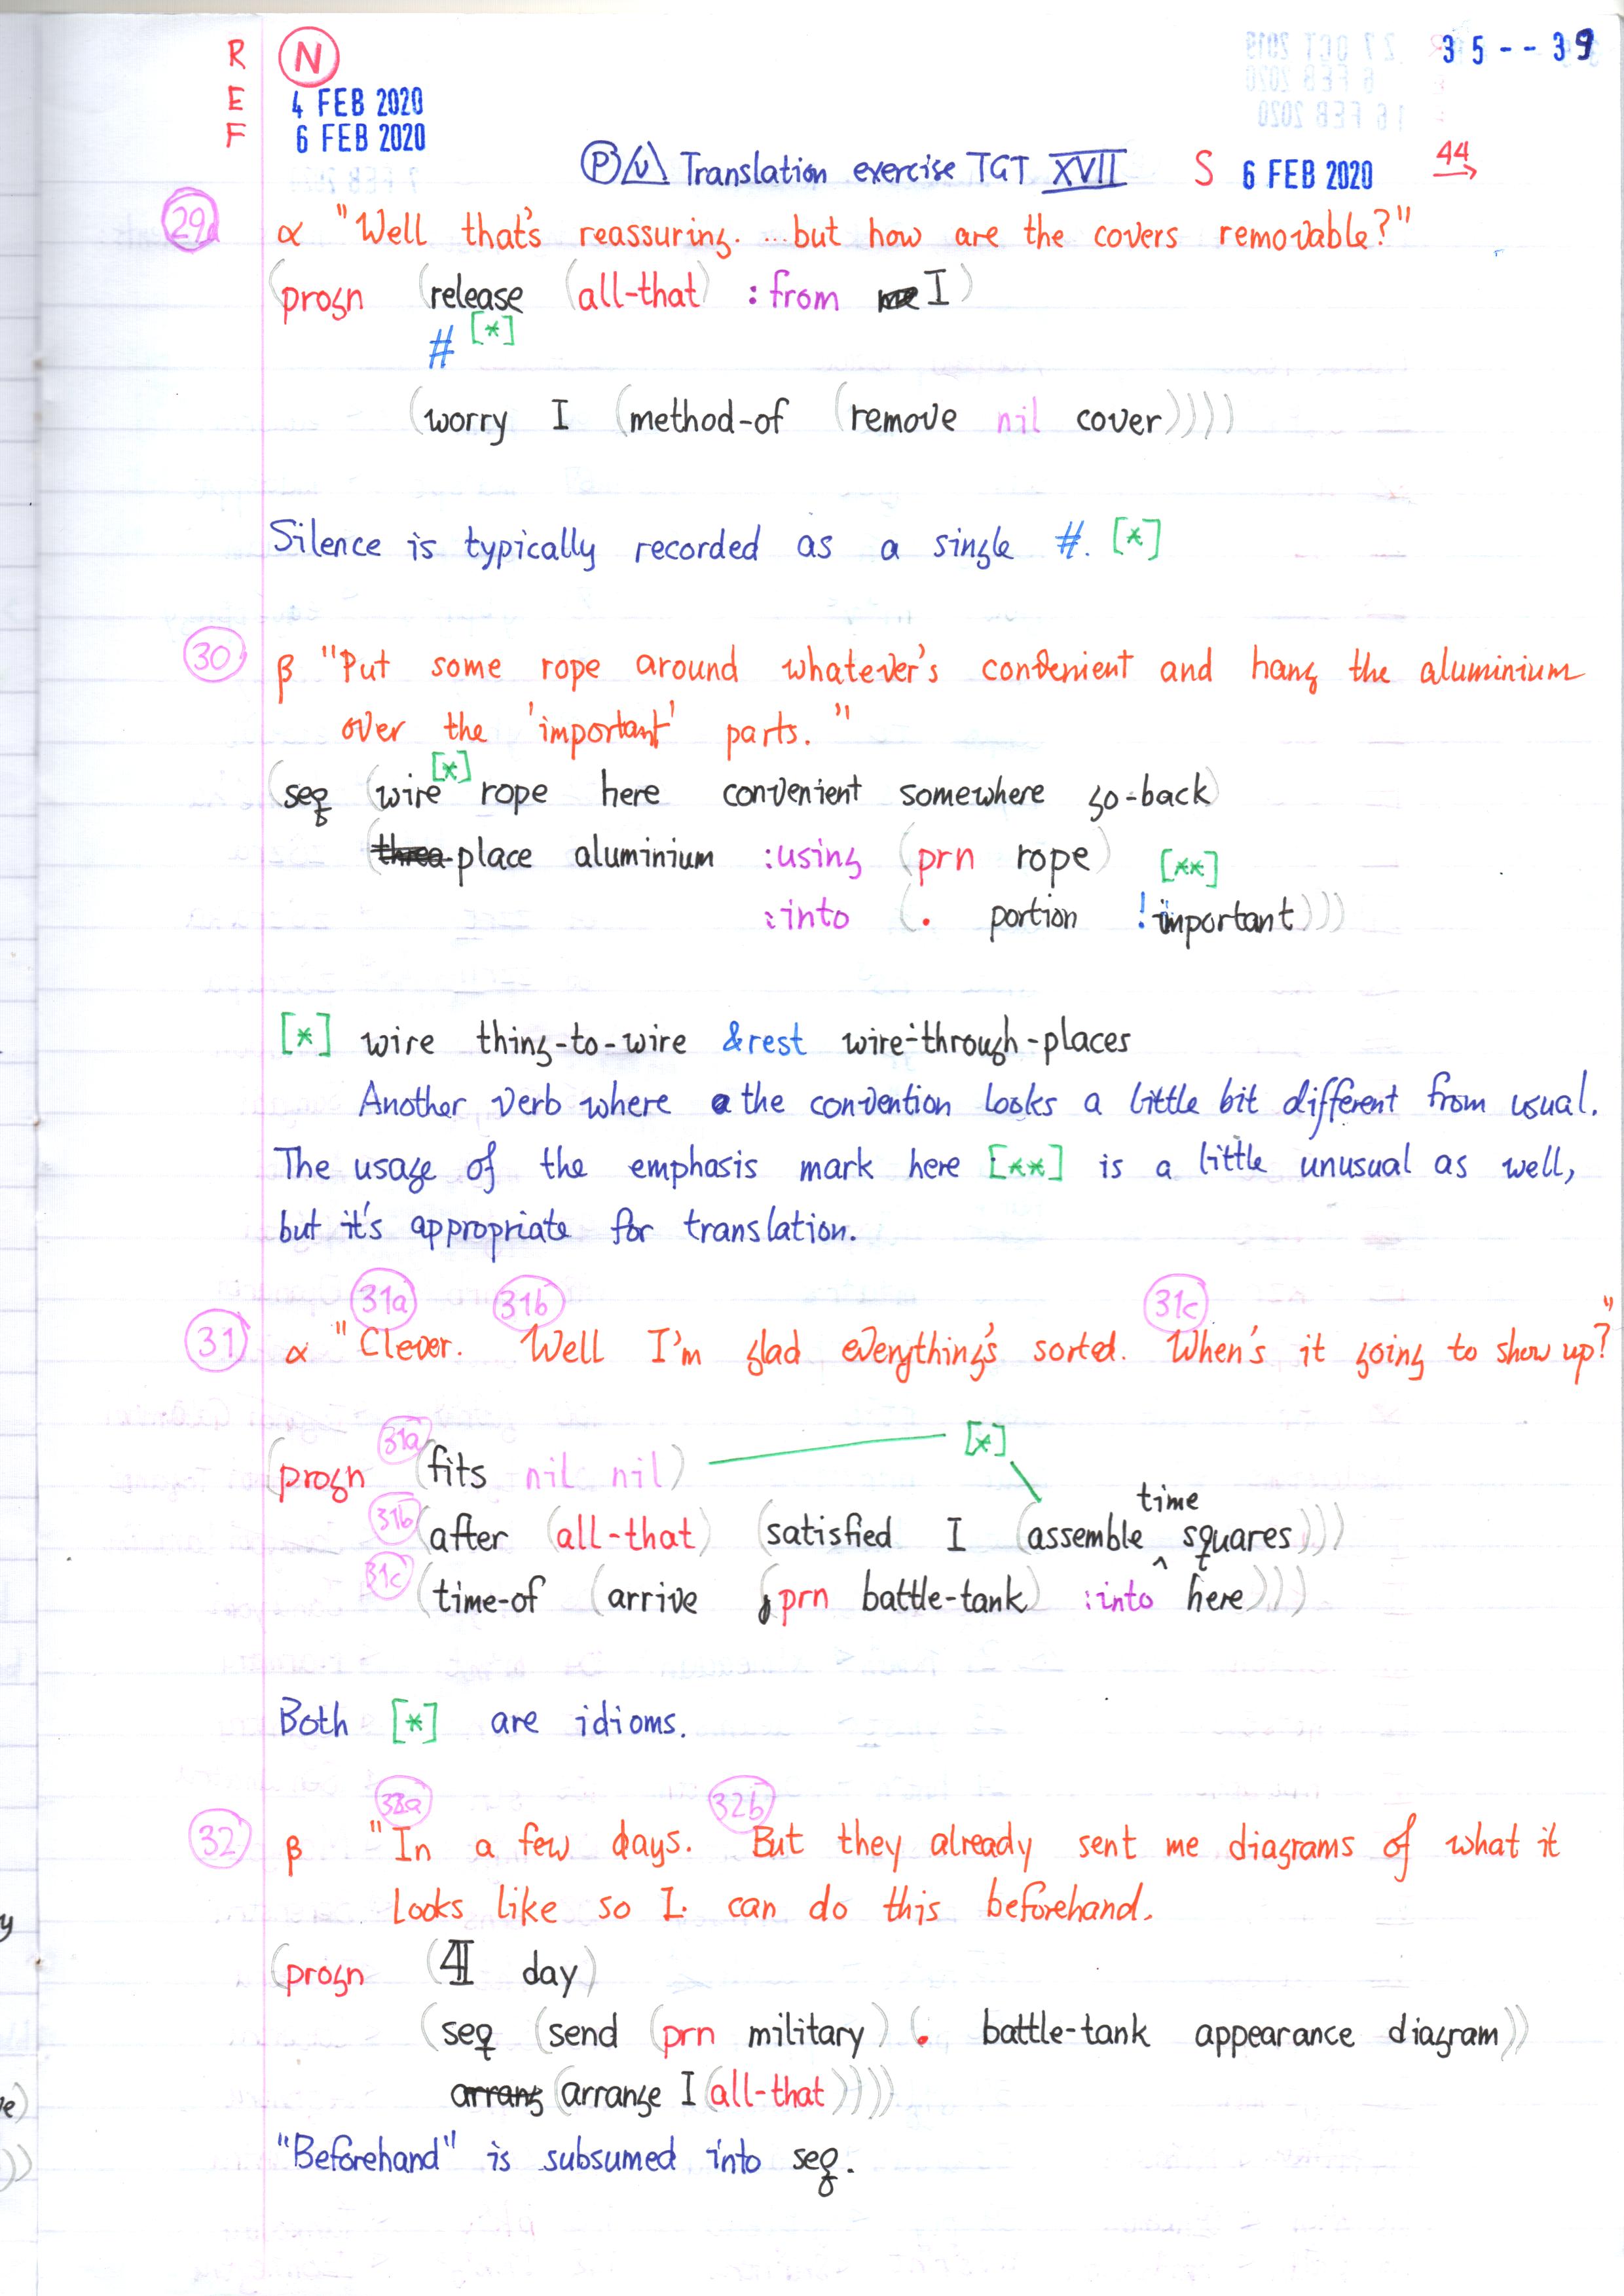 R N 35--39
E 4 FEB 2020
F 6 FEB 2020
Translation exercise TGT XVII S 6 FEB 2020 44
29a α "Well that's reassuring. ...but how are the covers removable?"
(progn (release (all-that) :from I)
# [*]
(worry I (method-of (remove nil cover))))
Silence is typically recorded as a single #. [*]
30 β "Put some rope around whatever's convenient and hang the aluminium
over the 'important' parts."
[*]
(seq (wire rope here convenient somewhere go-back)
(place aluminium :using (prn rope) [**]
:into (. portion !important)))
[*] wire thing-to-wire &rest wire-through-places
Another verb where the convention looks a little bit different from usual.
The usage of the emphasis mark here [**] is a little unusual as well,
but it's appropriate for translation.
31a 31b 31c
31 α "Clever. Well I'm glad everything's sorted. When's it going to show up?"
(progn 31a (fits nil nil) [*]
31b (after (all-that) (satisfied I (assemble ^ time squares)))
31c (time-of (arrive (prn battle-tank) :into here)))
Both [*] are idioms.
32a 32b
32 β "In a few days. But they already sent me diagrams of what it
looks like so I can do this beforehand.
(progn (4I day)
(seq (send (prn military) (. battle-tank appearance diagram))
(arrange I (all-that))))
"Beforehand" is subsumed into seq.